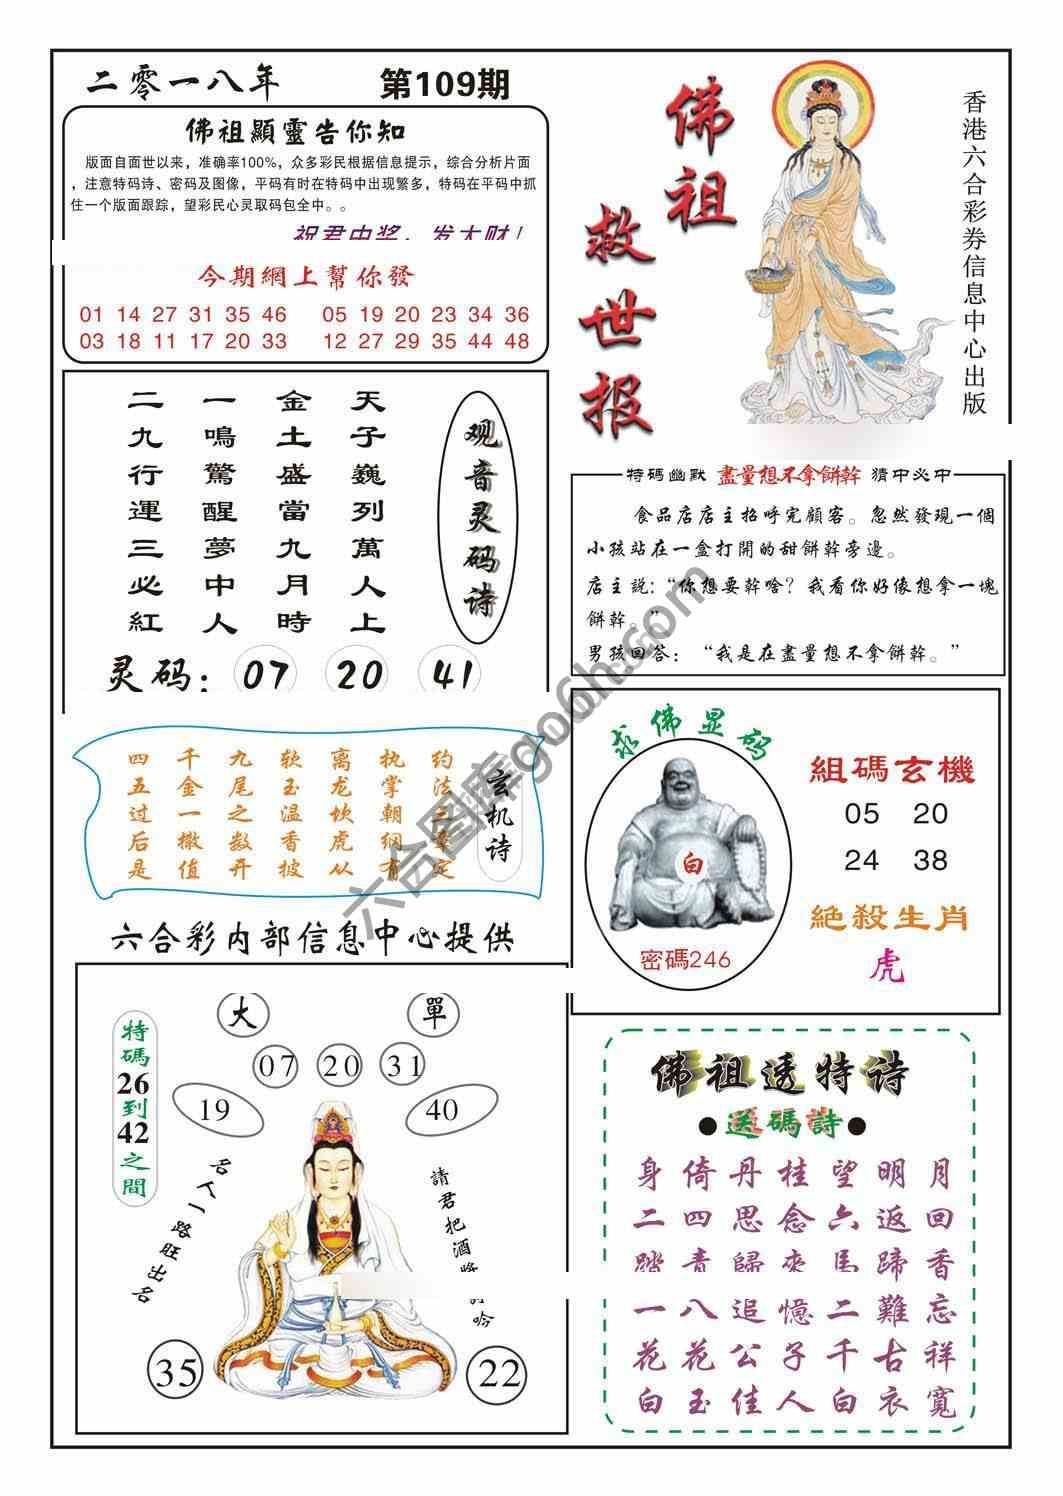 二零一八年 第109期
佛祖顯靈告你知
版面自面世以来，准确率100%，众多彩民根据信息提示，综合分析片面
，注意特码诗、密码及图像，平码有时在特码中出现繁多，特码在平码中抓
住一个版面跟踪，望彩民心灵取码包全中。。
祝君中奖，发大财！
今期網上幫你發
01 14 27 31 35 46 05 19 20 23 34 36
03 18 11 17 20 33 12 27 29 35 44 48
佛祖救世报
香港六合彩券信息中心出版
观音灵码诗
天子巍列萬人上
金土盛當九月時
一鳴驚醒夢中人
二九行運三必紅
灵码：07 20 41
特碼幽默 盡量想不拿餅幹 猜中必中
食品店店主招呼完顧客。忽然發現一個
小孩站在一盒打開的甜餅幹旁邊。
店主説：“你想要幹啥？我看你好像想拿一塊
餅幹。”
男孩回答：“我是在盡量想不拿餅幹。”
玄机诗
约法三章定
执掌朝纲有
离龙坎虎从
软玉温香披
九尾之数开
千金一撒值
四五过后是
求佛显码
白
密碼246
組碼玄機
05 20
24 38
絕殺生肖
虎
六合彩内部信息中心提供
大 單
07 20 31
19 40
特碼26到42之間
名人一路旺出名
請君把酒將 吟
35 22
佛祖透特诗
●送碼詩●
身倚丹桂望明月
二四思念六返回
踏青歸來馬蹄香
一八追憶二難忘
花花公子千古祥
白玉佳人白衣寬
六合图库go6h.com